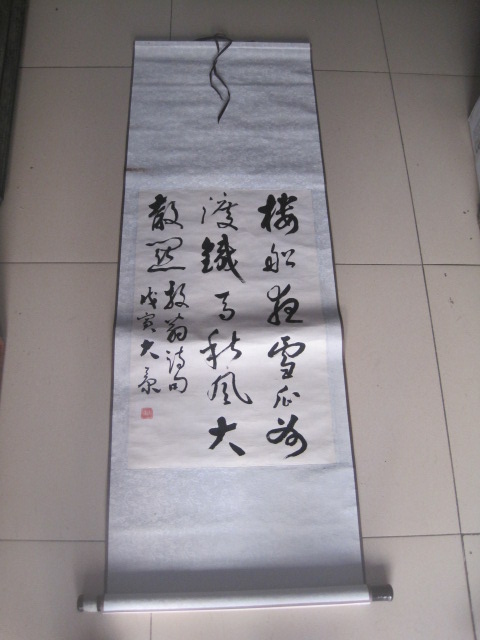 樓船夜雪瓜洲
渡鐵馬秋風大
散關
放翁詩句
戊寅大